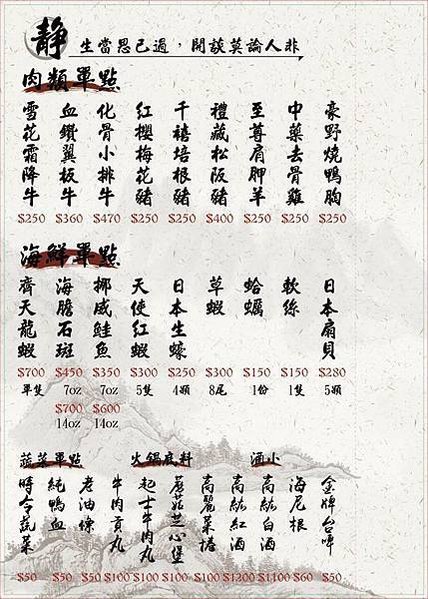 靜
生當思己過，閒談莫論人非
肉類單點
雪花霜降牛
血鑽翼板牛
化骨小排牛
紅櫻梅花豬
千禧培根豬
禮藏松阪豬
至尊肩胛羊
中藥去骨雞
豪野燒鴨胸
$250 $360 $470 $250 $250 $400 $250 $250 $250
海鮮單點
齊天龍蝦
海膽石斑
挪威鮭魚
天使紅蝦
日本生蠔
草蝦
蛤蠣
軟絲
日本扇貝
$700 $450 $350 $300 $250 $300 $150 $150 $280
單隻 7oz 7oz 5隻 4顆 8尾 1份 1隻 5顆
$700 $600
14oz 14oz
蔬菜單點 火鍋底料 酒水
時令蔬菜
純鴨血
老油條
牛肉貢丸
起士牛肉丸
蘑菇芝心堡
高麗菜捲
高級紅酒
高級白酒
海尼根
金牌台啤
$50 $50 $50 $100 $100 $100 $100 $1200 $1100 $60 $50